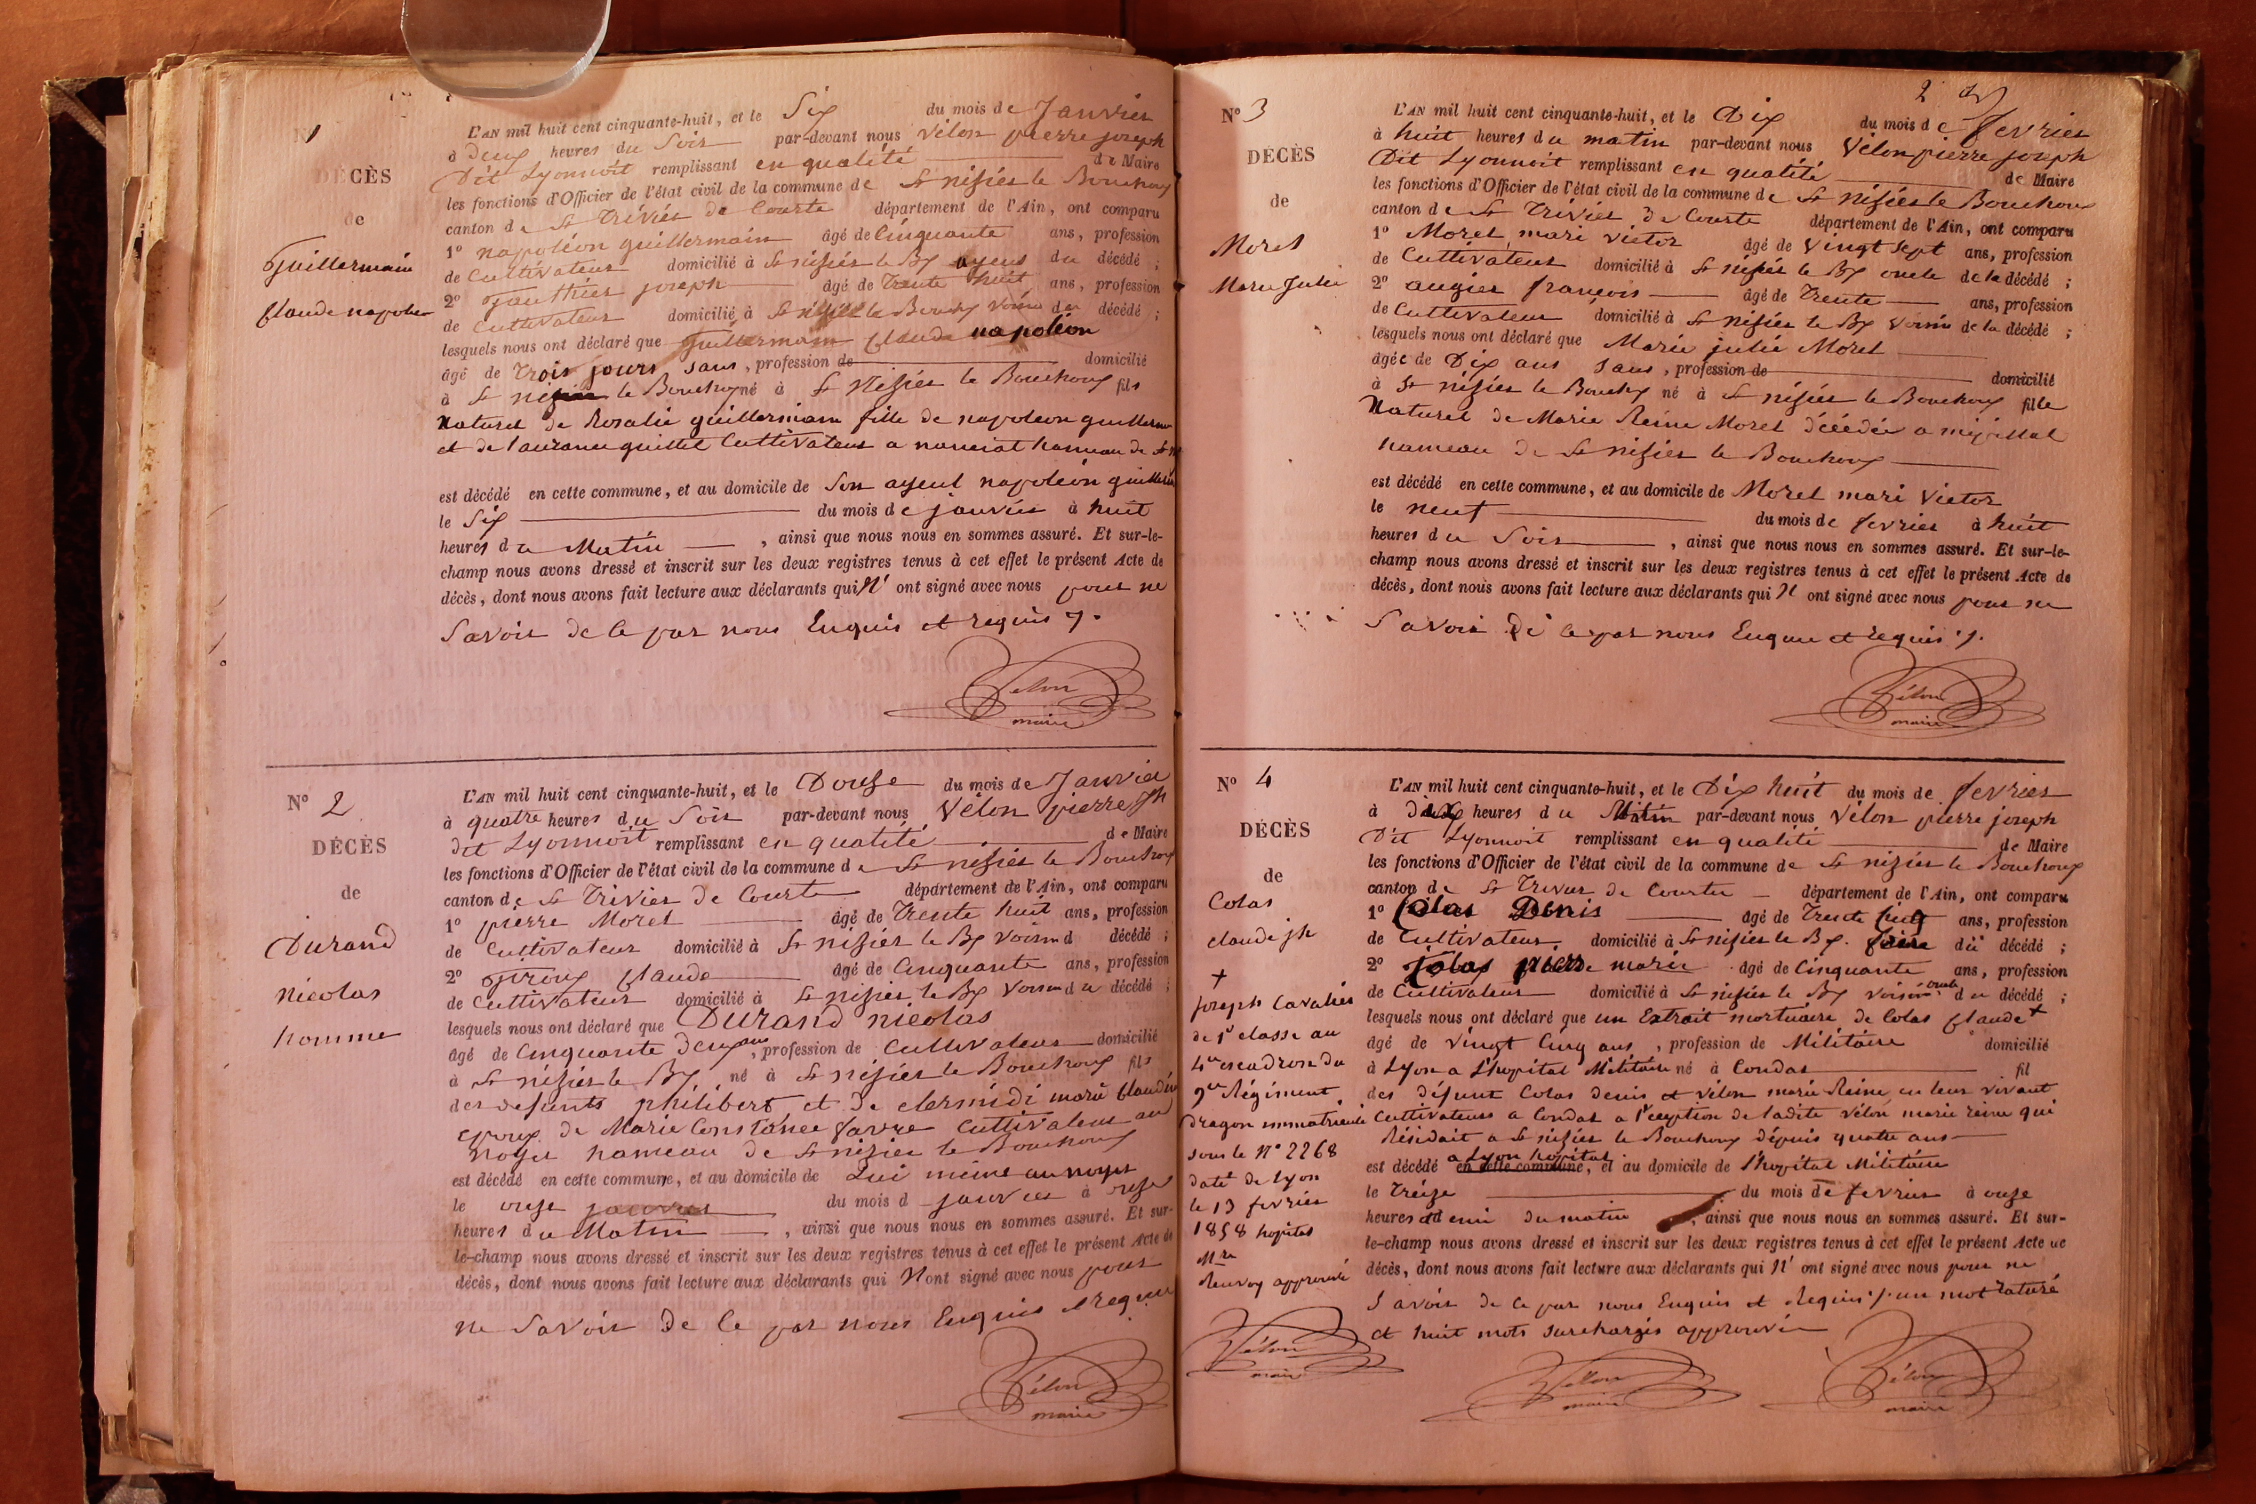 N 1
DÉCÈS
de
Guillermain
Claude napoléon
L'AN mil huit cent cinquante-huit, et le Six du mois de Janvier
à Deux heures du Soir par-devant nous Vélon pierre joseph
Dit Lyonnoit remplissant en qualité de Maire
les fonctions d'Officier de l'état civil de la commune de St nizier le Bouchoux
canton de St Trivier de Courte département de l'Ain, ont comparu
1° napoléon guillermain âgé de Cinquante ans, profession
de Cultivateur domicilié à St nizier le Bx ayeul du décédé ;
2° Gauthier joseph âgé de Trente huit ans, profession
de Cultivateur domicilié à St nizier le Bouchx Voisin du décédé ;
lesquels nous ont déclaré que Guillermain Claude napoléon
âgé de trois jours sans, profession de domicilié
à St nizier le Bouchoux né à St Nizier le Bouchoux fils
Naturel de Rosalie guillermain fille de napoleon guillermain
et de Sauzanne guillet Cultivateur a manciat hameau de St
est décédé en cette commune, et au domicile de Son ayeul napoléon guillermain
le Six du mois de janvier à huit
heures du Matin, ainsi que nous nous en sommes assuré. Et sur-le-
champ nous avons dressé et inscrit sur les deux registres tenus à cet effet le présent Acte de
décès, dont nous avons fait lecture aux déclarants qui N' ont signé avec nous pour ne
Savoir de Ce par nous Enquis et requis /.
Vélon
maire
N° 2
DÉCÈS
de
Durand
Nicolas
homme
L'AN mil huit cent cinquante-huit, et le Douze du mois de Janvier
à quatre heures du Soir par-devant nous Vélon pierre Jh
dit Lyonnoit remplissant en qualité de Maire
les fonctions d'Officier de l'état civil de la commune de St nizier le Bouchoux
canton de St Trivier de Courte département de l'Ain, ont comparu
1° pierre Morel âgé de Trente huit ans, profession
de Cultivateur domicilié à St nizier le Bx Voisin d décédé ;
2° Giroux Claude âgé de Cinquante ans, profession
de Cultivateur domicilié à St nizier le Bx Voisin du décédé ;
lesquels nous ont déclaré que Durand nicolas
âgé de Cinquante Deux ans, profession de Cultivateur domicilié
à St nizier le Bx né à St nizier le Bouchoux fils
des defunts philibert et de clermidi marie Claudine
epoux de Marie Constance favre Cultivateur au
noyer hameau de St nizier le Bouchoux
est décédé en cette commune, et au domicile de Lui même au noyer
le onze janvier du mois d janvier à onze
heures du Matin, ainsi que nous nous en sommes assuré. Et sur-
le-champ nous avons dressé et inscrit sur les deux registres tenus à cet effet le présent Acte de
décès, dont nous avons fait lecture aux déclarants qui N ont signé avec nous pour
ne Savoir de Ce par nous Enquis et requis
Vélon
maire
2
N° 3
DÉCÈS
de
Morel
Marie Julie
L'AN mil huit cent cinquante-huit, et le Dix du mois de fevrier
à huit heures du matin par-devant nous Vélon pierre joseph
Dit Lyonnoit remplissant en qualité de Maire
les fonctions d'Officier de l'état civil de la commune de St nizier le Bouchoux
canton de St Trivier de Courte département de l'Ain, ont comparu
1° Morel mari victor âgé de Vingt sept ans, profession
de Cultivateur domicilié à St nizier le Bx oncle de la décédé ;
2° augier françois âgé de Trente ans, profession
de Cultivateur domicilié à St nizier le Bx Voisin de la décédé ;
lesquels nous ont déclaré que Marie julie Morel
âgée de Dix ans sans, profession de domicilié
à St nizier le Bouchx né à St nizier le Bouchoux fille
Naturel de Marie Reine Morel décédée a
hameau de St nizier le Bouchoux
est décédé en cette commune, et au domicile de Morel mari Victor
le neuf du mois de fevrier à huit
heures du Soir, ainsi que nous nous en sommes assuré. Et sur-le-
champ nous avons dressé et inscrit sur les deux registres tenus à cet effet le présent Acte de
décès, dont nous avons fait lecture aux déclarants qui N ont signé avec nous pour ne
Savoir de ce par nous Enquis et requis /.
Vélon
maire
N° 4
DÉCÈS
de
Colas
claude jh
+
joseph Cavalier
de 1e classe au
4me escadron du
9me Régiment
Dragon immatricule
sous le N° 2268
daté de Lyon
le 13 fevrier
1858 hopital
Mre
Renvoy approuvé
Vélon
maire
L'AN mil huit cent cinquante-huit, et le Dix huit du mois de fevrier
à dix heures du Matin par-devant nous Vélon pierre joseph
Dit Lyonnoit remplissant en qualité de Maire
les fonctions d'Officier de l'état civil de la commune de St nizier le Bouchoux
canton de St Trivier de Courte département de l'Ain, ont comparu
1° Colas Denis âgé de Trente huit ans, profession
de Cultivateur domicilié à St nizier le Bx. frère du décédé ;
2° Colas pierre marie âgé de Cinquante ans, profession
de Cultivateur domicilié à St nizier le Bx voisin oncle du décédé ;
lesquels nous ont déclaré que un Extrait mortuaire de Colas Claude +
âgé de Vingt Cinq ans, profession de Militaire domicilié
à Lyon a L'hopital Militaire né à Condat fil
des défunt Colas denis et Vélon marie Reine en leur vivant
Cultivateurs a Condat a l'eception de ladite Vélon marie reine qui
Résidait a St nizier le Bouchoux dépuis quatre ans
est décédé en cette commune, a Lyon hopital et au domicile de l'hopital Militaire
le Treize du mois de fevrier à onze
heures et demi du matin, ainsi que nous nous en sommes assuré. Et sur-
le-champ nous avons dressé et inscrit sur les deux registres tenus à cet effet le présent Acte de
décès, dont nous avons fait lecture aux déclarants qui N' ont signé avec nous pour ne
Savoir de Ce par nous Enquis et Requis /. un mot raturé
et huit mots surchargés approuvé
Vélon
maire
Vélon
maire